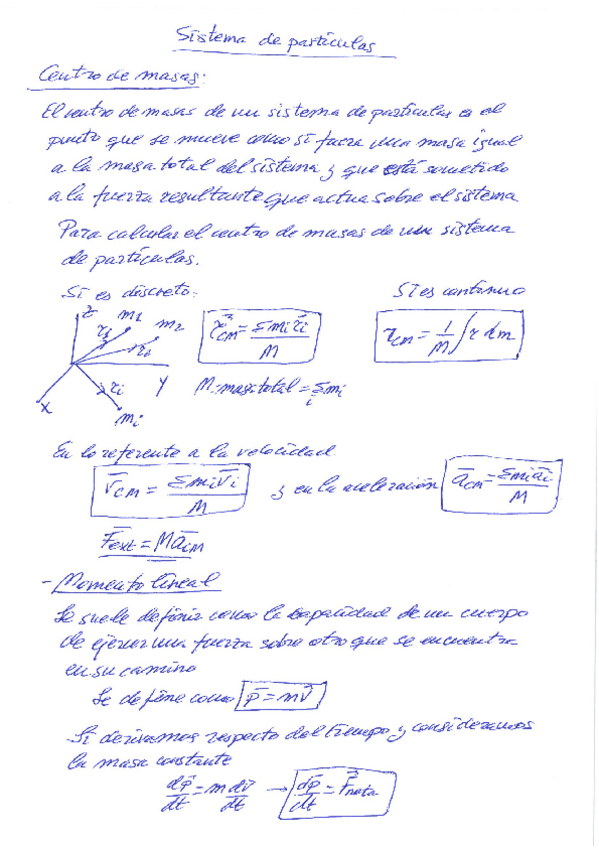 Sistema de partículas
Centro de masas:
El centro de masas de un sistema de partículas es el
punto que se mueve como si fuera una masa igual
a la masa total del sistema y que está sometido
a la fuerza resultante que actua sobre el sistema
Para calcular el centro de masas de un sistema
de partículas.
Si es discreto: Si es continuo
z m₁ m₂ r₁ r₂ y x rᵢ mᵢ
r⃗cm = Σmᵢr⃗ᵢ / M rcm = 1/M ∫ r dm
M: masa total = Σmᵢ
i
En lo referente a la velocidad
v̄cm = Σmᵢv̄ᵢ / M y en la aceleración ācm = Σmᵢāᵢ / M
F̄ext = Mācm
- Momento lineal
Se suele definir como la capacidad de un cuerpo
de ejercer una fuerza sobre otro que se encuentra
en su camino
Se define como p̄ = mv̄
Si derivamos respecto del tiempo y consideramos
la masa constante
dp̄/dt = m dv̄/dt → dp̄/dt = F⃗neta